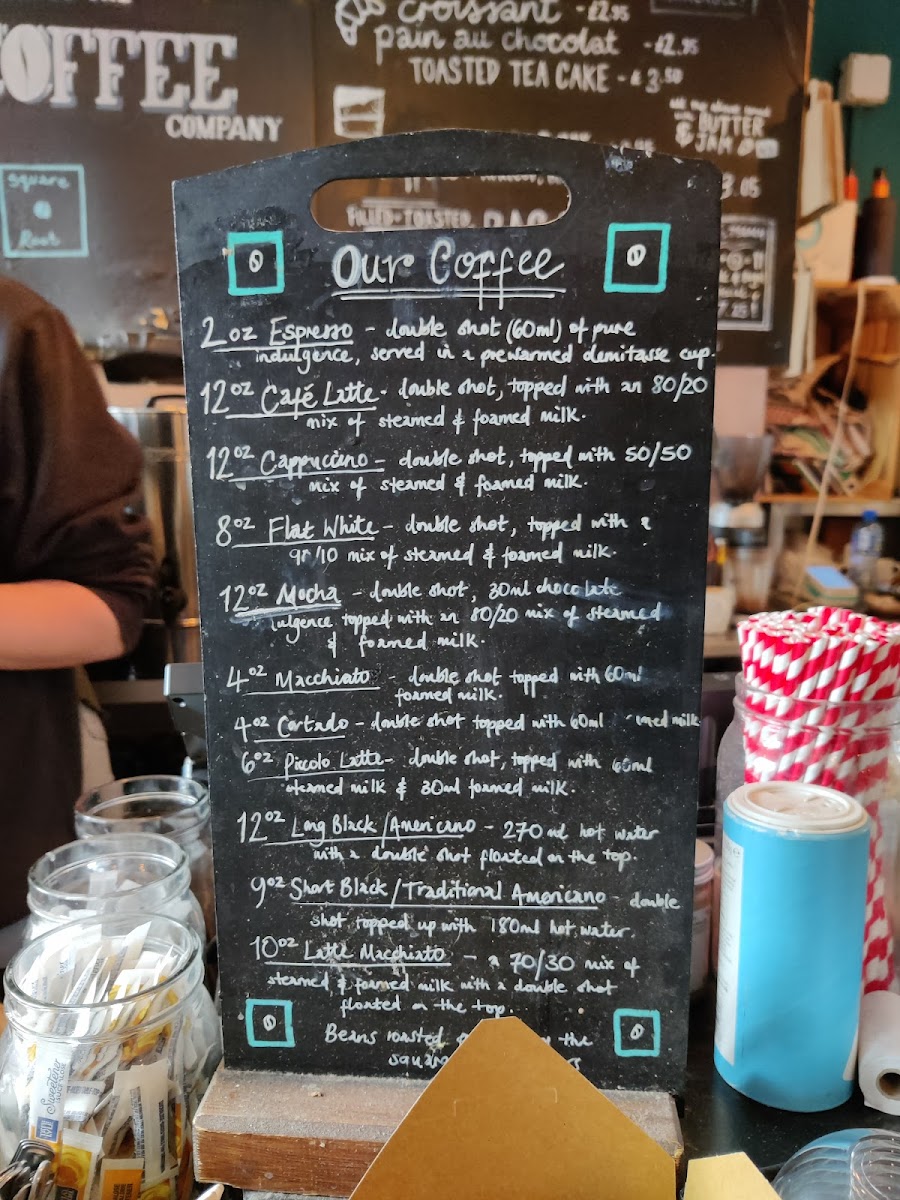 croissant - £2.95
pain au chocolat - £2.95
TOASTED TEA CAKE - £3.50
COFFEE
COMPANY
& BUTTER
JAM
Square
Root
FILLED TOASTED
Our Coffee
2 oz Espresso - double shot (60ml) of pure
indulgence, served in a prewarmed demitasse cup.
12oz Café Latte - double shot, topped with an 80/20
mix of steamed & foamed milk.
12oz Cappuccino - double shot, topped with 50/50
mix of steamed & foamed milk.
8oz Flat White - double shot, topped with a
90/10 mix of steamed & foamed milk.
12oz Mocha - double shot, 30ml chocolate
ulgence topped with an 80/20 mix of steamed
& foamed milk.
4oz Macchiato - double shot topped with 60ml
foamed milk.
4oz Cortado - double shot topped with 60ml milk
6oz Piccolo Latte - double shot, topped with 60ml
steamed milk & 30ml foamed milk.
12oz Long Black/Americano - 270ml hot water
with a double shot floated on the top.
9oz Short Black/Traditional Americano - double
shot topped up with 180ml hot water.
10oz Latte Macchiato - a 70/30 mix of
steamed & foamed milk with a double shot
floated on the top.
Beans roasted the
Sweetener